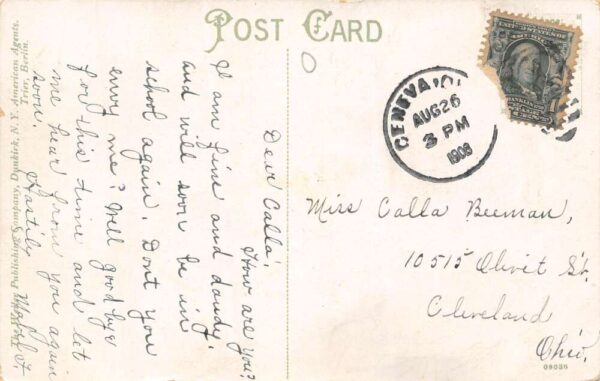 POST CARD
Dear Calla:
How are you?
I am fine and dandy,
and will soon be in
school again. Dont you
envy me? Well goodbye
for this time and let
me hear from you again
soon. Hastily
Miss Calla Beeman,
10515 Olivit St.
Cleveland
Ohio.
GENEVA, O.
AUG 26
3 PM
1908
FRANKLIN
Publishing Company, Dunkirk, N. Y. American Agents.
Berlin.